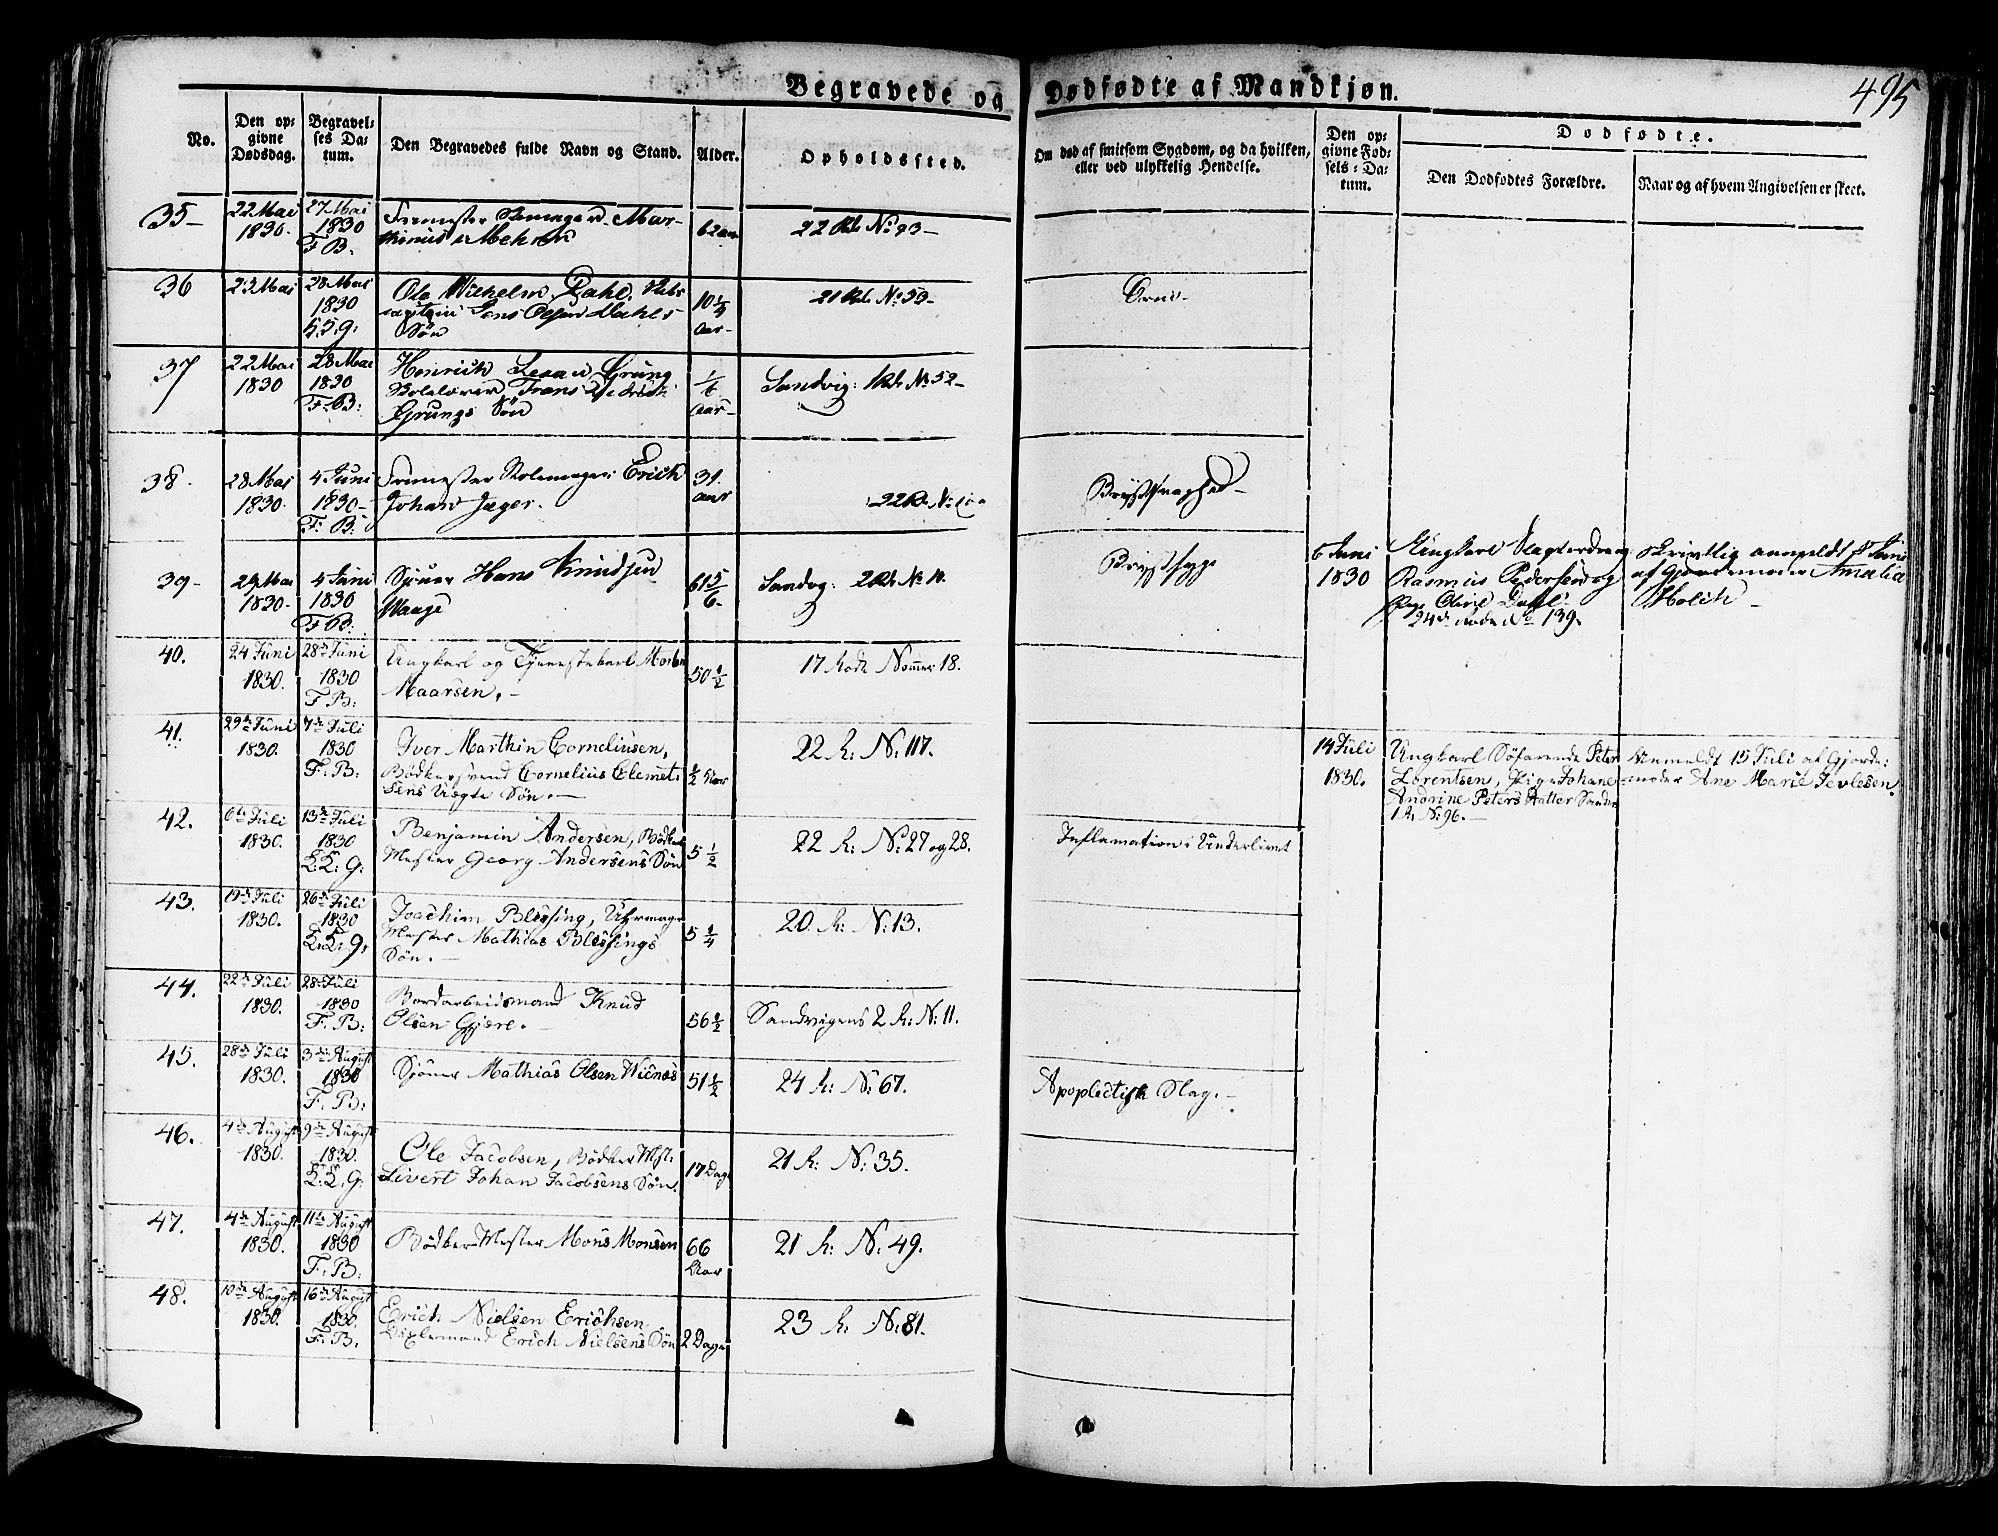 Begravede og Dødfødte af Mandkjøn.
495
No.
Den opgivne Dødsdag.
Begravelses Datum.
Den Begravedes fulde Navn og Stand.
Alder.
Opholdssted.
Om død af smitsom Sygdom, og da hvilken, eller ved ulykkelig Hendelse.
Den opgivne Fødsels-Datum.
Dødfødte.
Den Dødfødtes Forældre.
Naar og af hvem Angivelsen er skeet.
35-
22 Mai 1830.
27 Mai 1830 F. B:
62 aar
22 Rd. No 93-
36
23 Mai
28 Mai 1830
Ole Wilhelm Dahl,
Jens Olsen Dahls
Søn
10 1/4 aar-
21 Rd. No 53-
37
22 Mai 1830
28 Mai 1830 F. B:
Grung
Grungs Søn
aar-
Sandvig: 1 Rd. No 52-
38.
28 Mai 1830.
4 Juni 1830- F: B:
Erich
Johan Jæger.
31. aar
22 Rd.
39-
29 Mai 1830-
4 Juni 1830 F. B:
Sjøuer Hans Knudsen
Waage
61 5/6.
Sandvg: 2 Rd. No 10.
Brystsyge
6 Juni 1830
Ungkarl
Rasmus Pedersen og
Pige Oline Dahl:
24de Rode No 139.
skrivtlig anmeldt
af Gjordemoder Amalia
Holck-
40.
24 Juni 1830.
28de Juni 1830 F. B:
Ungkarl og Tjenestekarl
Maarsen.-
50 1/2
17 Rode Nomer 18.
41.
29de Juni 1830.
7de Juli 1830 F. B:
Iver Marthin Corneliusen,
Bødkersvend Cornelius Clemet:
sens Uægte Søn.-
1/2 Aar
22 R: N: 117.
14 Juli 1830.
Ungkarl Søfarende Peter
Lorentsen, Pige Johane
Andrine Peters Datter Sandv:
1 R: N: 96.-
Anmeldt 15 Juli af Gjorde:
moder Ane Marie Jevlesen.
42.
6te Juli 1830.
13de Juli 1830 L: L: G:
Benjamin Andersen, Bødker
Mester Georg Andersens Søn
5 1/2
22 R: N: 27 og 28.
Inflamation i Underlivet
43.
19de Juli 1830.
26de Juli 1830 L: L: G:
Joachim Blessing, Uhrmager
Mester Mathias Blessings
Søn.-
5 1/4
20 R: N: 13.
44.
22de Juli 1830.
28de Juli 1830 F. B:
Bordarbeidsmand Knud
Olsen Gjere.-
56 1/2
Sandvigens 2 R: N: 11.
45.
28de Juli 1830.
3die August 1830 F. B:
Sjøuer Mathias Olsen Wienes
51 1/2
24 R: N: 67.
Apoplectisk Slag.-
46.
4de August 1830.
9de August 1830. L. L. G.
Ole Jacobsen, Bødker Mst:
Sivert Johan Jacobsens Søn.
17 Dag
21 R: N: 35.
47.
4de August 1830.
11te August 1830 F. B:
Bødker-Mester Mons Monsen
66 Aar
21 R: N: 49.
48.
10de August 1830.
16de August 1830. F. B.
Erich Nielsen Erichsen
Erich Nielsens Søn
2 Dage
23 R: N: 81.